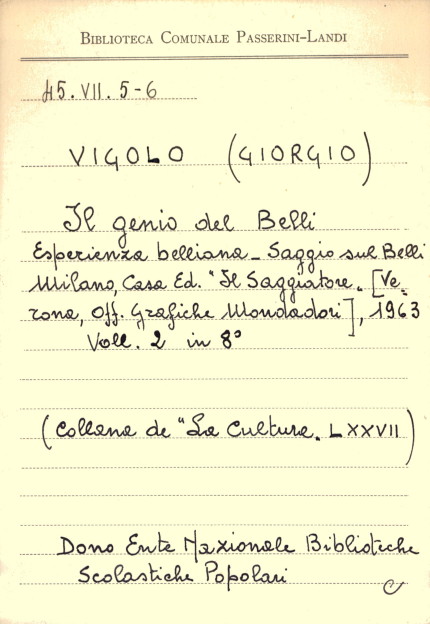 BIBLIOTECA COMUNALE PASSERINI-LANDI
45.VII.5-6
VIGOLO (GIORGIO)
Il genio del Belli
Esperienza belliana - Saggio sul Belli
Milano, Casa Ed. "Il Saggiatore„ [Ve-
rona, Off. Grafiche Mondadori], 1963
Voll. 2 in 8°
(Collana de "La Cultura„ LXXVII)
Dono Ente Nazionale Biblioteche
Scolastiche Popolari